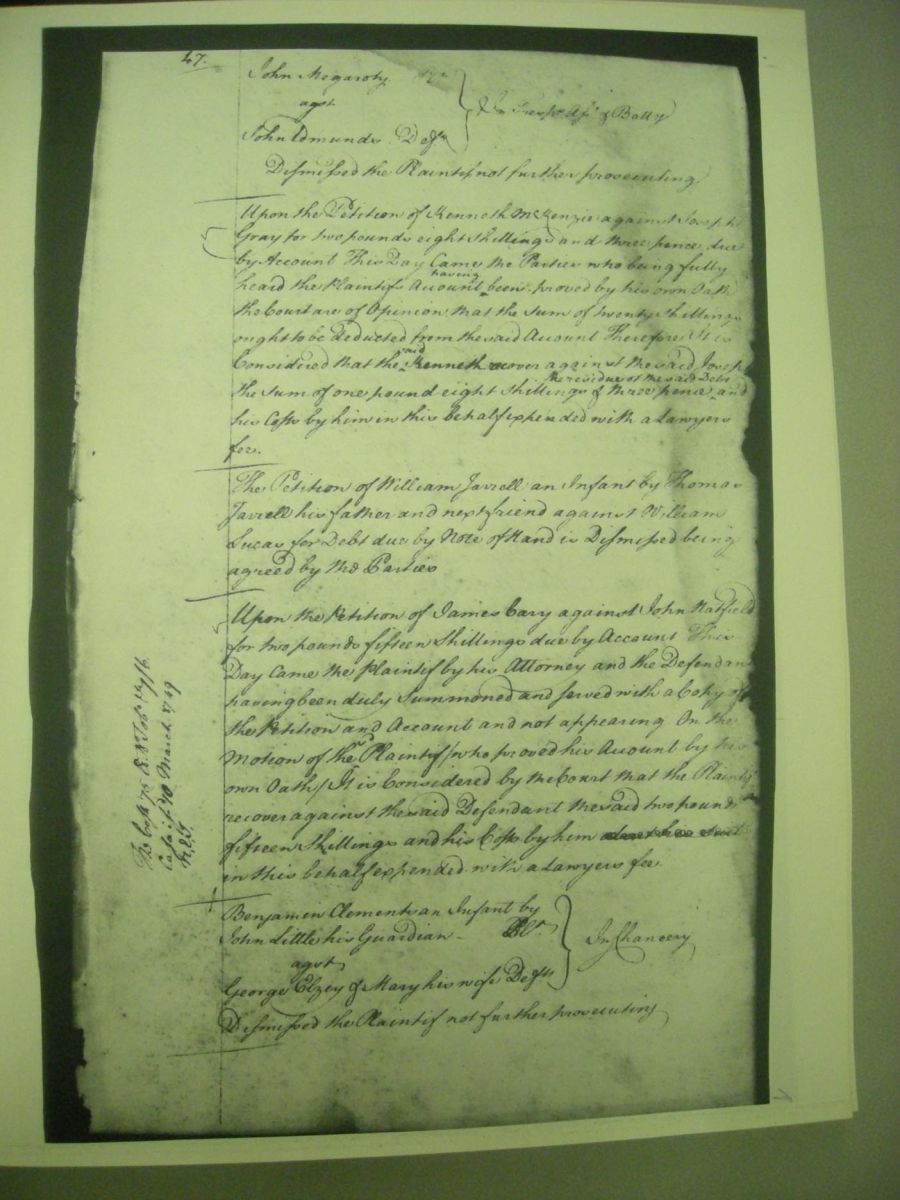 47.
John Megaroty
agst
John Edmunds Deft
In Tresps. Ast. & Batty
Dismissed the Plaintif not further prosecuting
Upon the Petition of Kenneth McKenzie against Joseph
Gray for two pounds eight shillings and three pence due
by Account This Day Came the Parties who being fully
heard the Plaintifs Account having been proved by his own Oath
the Court are of Opinion that the Sum of twenty shillings
ought to be deducted from the said Account Therefore It is
Considered that the said Kenneth recover against the said Joseph
the Sum of one pound eight Shillings & three pence the residue of the said Debt and
his Costs by him in this behalf expended with a Lawyers
fee.
The Petition of William Jarrell an Infant by Thomas
Jarrell his father and next friend against William
Lucas for Debt due by Note of Hand is Dismissed being
agreed by the Parties
Upon the Petition of James Cary against John Hatfield
for two pounds fifteen Shillings due by Account This
Day Came the Plaintif by his Attorney and the Defendant
having been duly Summoned and served with a Copy of
the Petition and Account and not appearing On the
Motion of the Plaintif /who proved his Account by his
own Oath/ It is Considered by the Court that the Plaintif
recover against the said Defendant the said two pounds
fifteen Shillings and his Costs by him
in this behalf expended with a Lawyers fee
Benjamin Clements an Infant by
John Little his Guardian Plt.
agst
George Elzey & Mary his wife Defts
In Chancery
Dismissed the Plaintif not further prosecuting